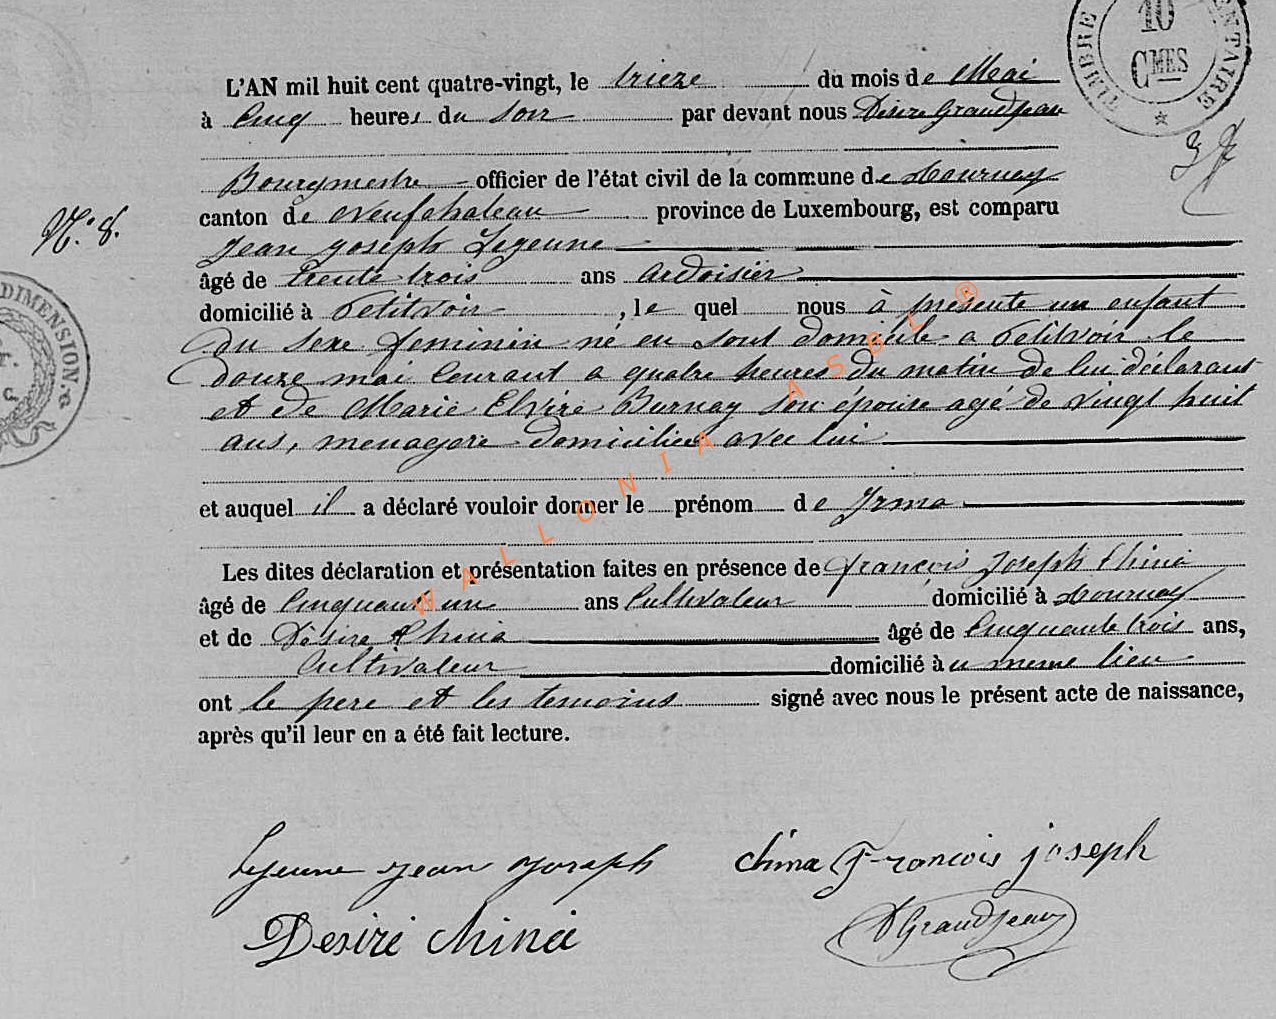 TIMBRE
10
CMES
ENTAIRE
L'AN mil huit cent quatre-vingt, le trieze du mois de Mai
à Cinq heures du Soir par devant nous Desire Grandjean
Bourgmestre officier de l'état civil de la commune de Tournay
canton de Neufchateau province de Luxembourg, est comparu
N.° 8.
Jean Joseph Lejeune
âgé de trente trois ans Ardoisier
domicilié à Petitvoir, le quel nous à presente un enfant
DIMENSION.
du sexe feminin né en sont domicile a Petitvoir le
douze mai Courant a quatre heures du matin de lui déclarant
et de Marie Elvire Burnay son épouse agé de vingt huit
ans, menagere domiciliee avec lui
et auquel il a déclaré vouloir donner le prénom de Irma
Les dites déclaration et présentation faites en présence de françois Joseph Chiná
âgé de Cinquant un ans Cultivateur domicilié à Tournay
et de Désire Chiná âgé de Cinquante trois ans,
Cultivateur domicilié à u meme lieu
ont le pere et les temoins signé avec nous le présent acte de naissance,
après qu'il leur en a été fait lecture.
WALLONIA ASBL ®
Lejeune Jean Joseph
china Francois joseph
Desiré chiná
D Grandjean